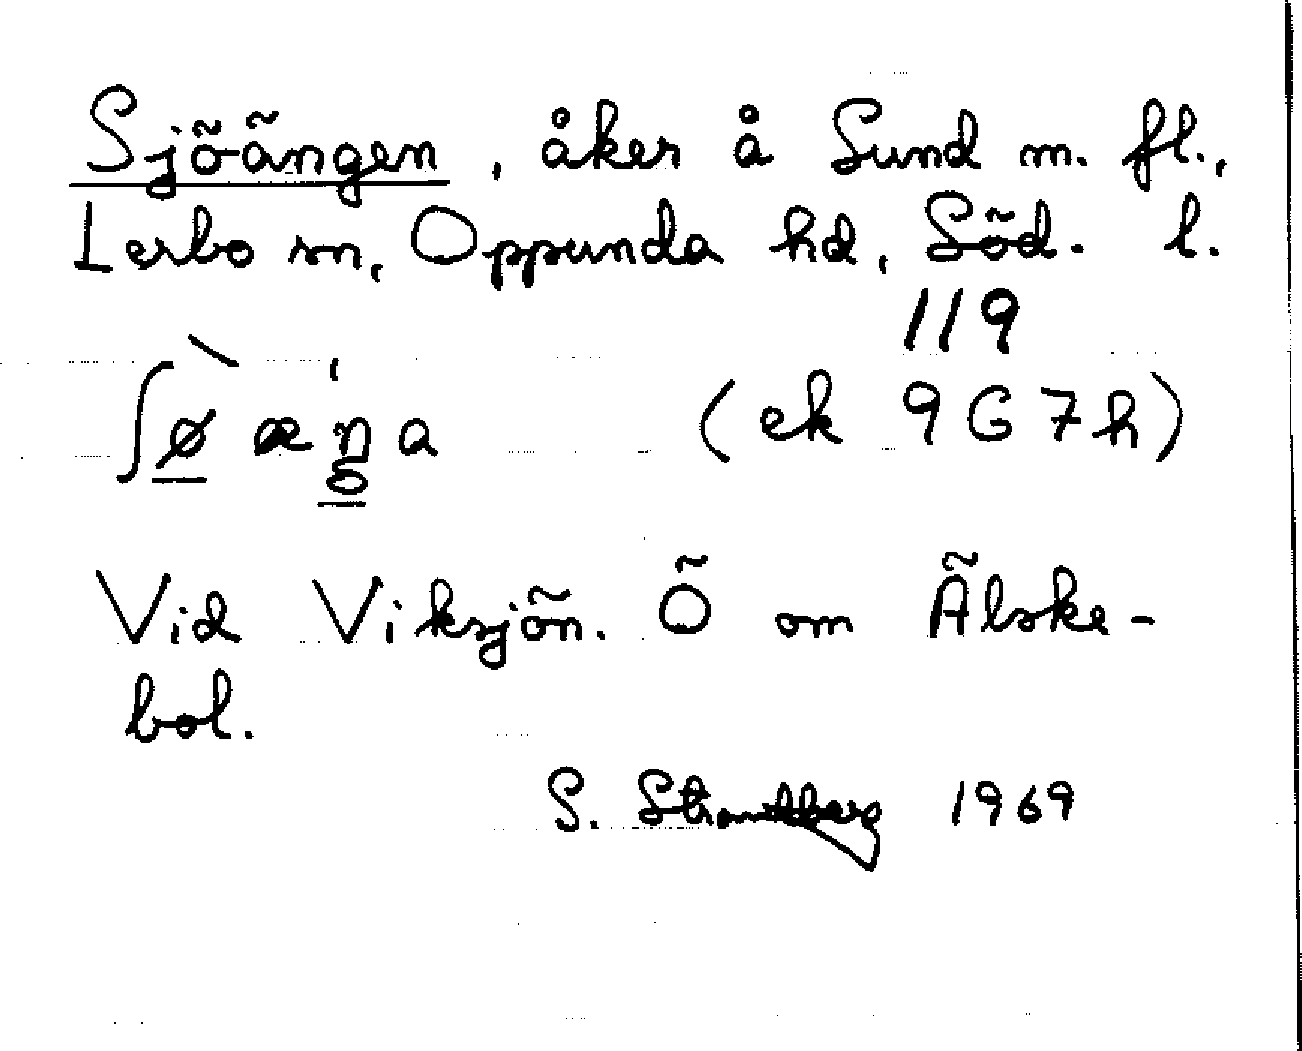 Sjöängen, åker å Sund m. fl.,
Lerbo sn, Oppunda hd, Söd. l.
119
(ek 9G7h)
Vid Viksjön. Ö om Älske-
bol.
S. Strandberg 1969